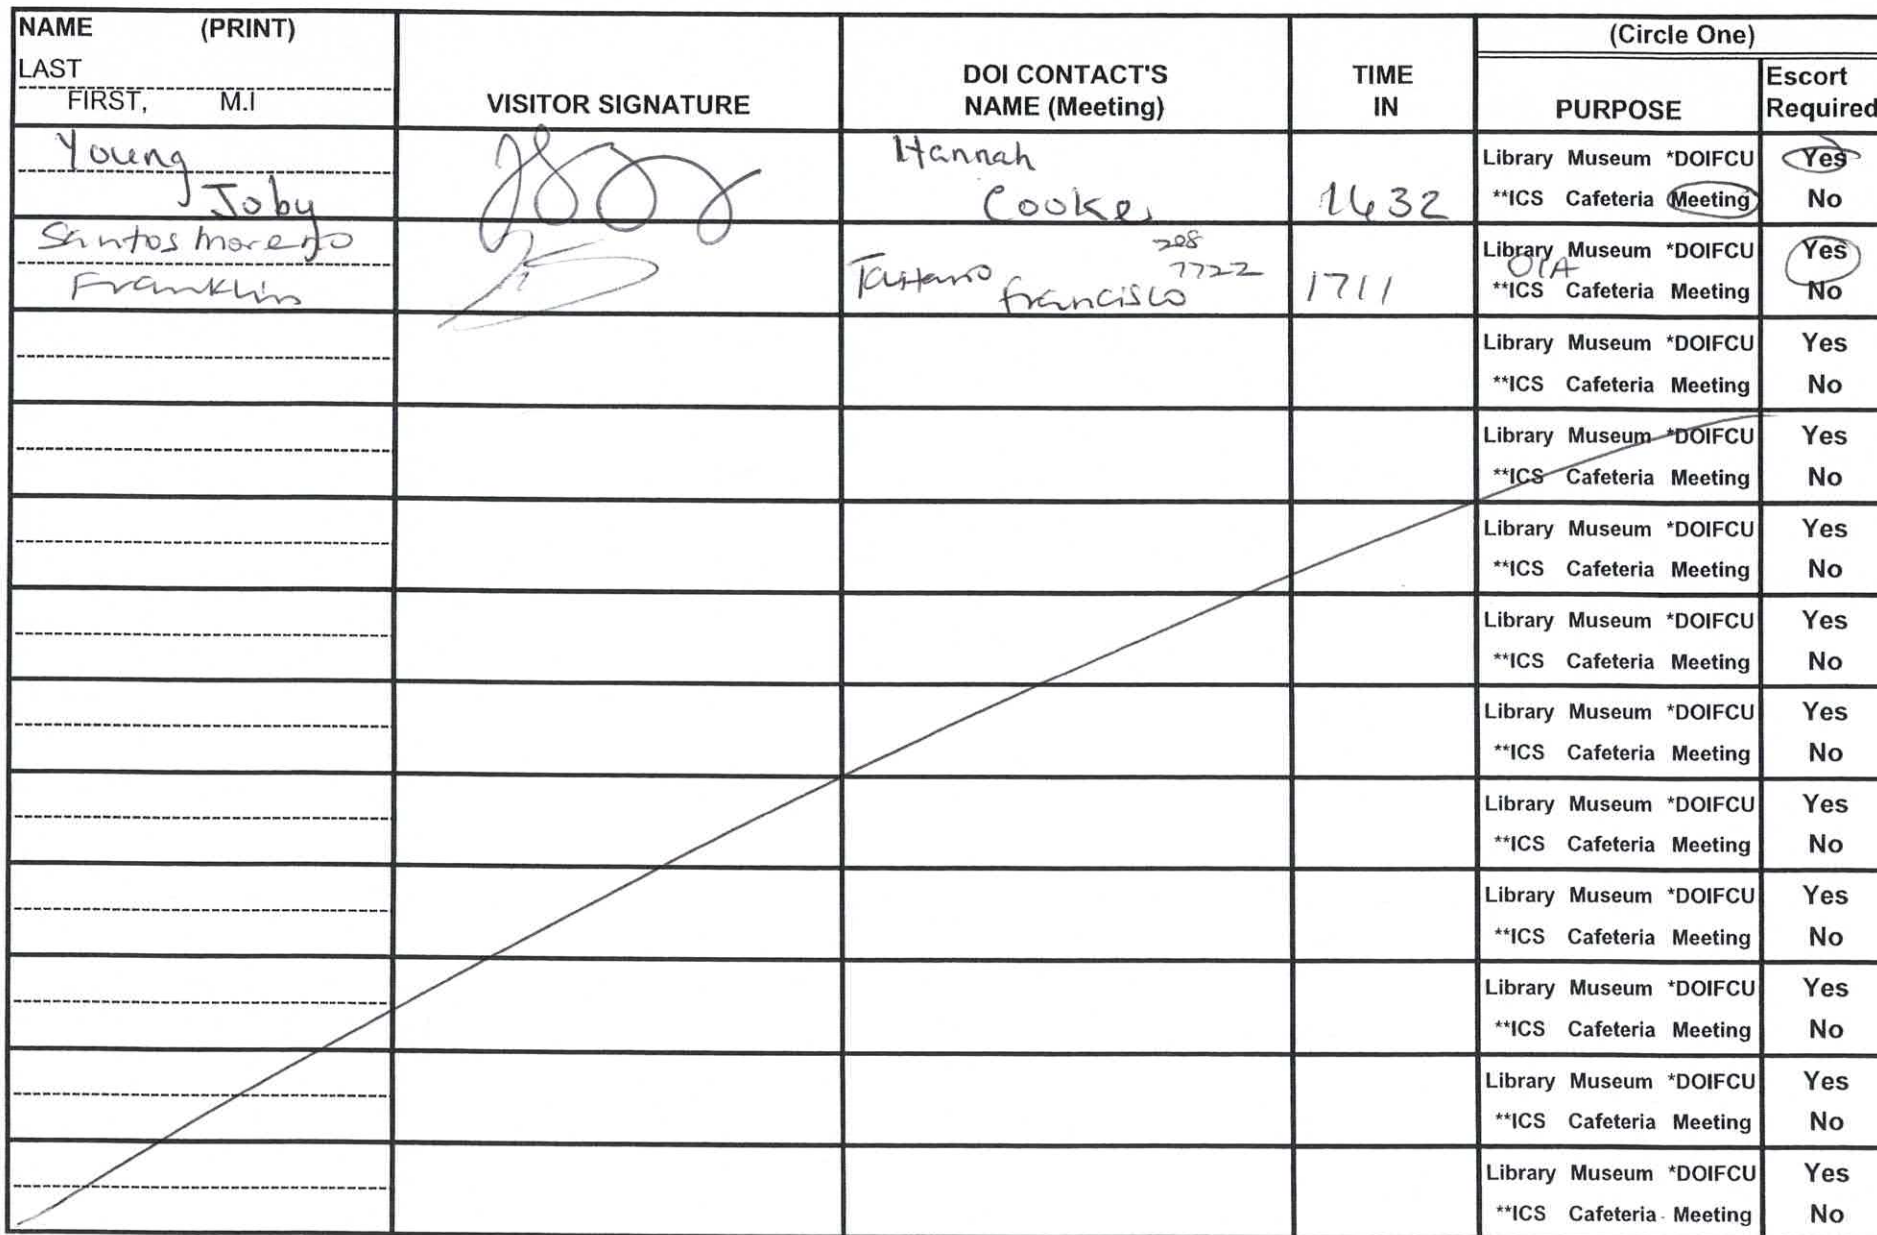 NAME (PRINT)
LAST
FIRST, M.I
VISITOR SIGNATURE
DOI CONTACT'S
NAME (Meeting)
TIME
IN
(Circle One)
PURPOSE
Escort
Required
Young
Joby
Hannah
Cooke
1432
Library Museum *DOIFCU
**ICS Cafeteria Meeting
Yes
No
Santos Moreno
Franklin
208
7722
Francisco
1711
Library Museum *DOIFCU
OIA
**ICS Cafeteria Meeting
Yes
No
Library Museum *DOIFCU
**ICS Cafeteria Meeting
Yes
No
Library Museum *DOIFCU
**ICS Cafeteria Meeting
Yes
No
Library Museum *DOIFCU
**ICS Cafeteria Meeting
Yes
No
Library Museum *DOIFCU
**ICS Cafeteria Meeting
Yes
No
Library Museum *DOIFCU
**ICS Cafeteria Meeting
Yes
No
Library Museum *DOIFCU
**ICS Cafeteria Meeting
Yes
No
Library Museum *DOIFCU
**ICS Cafeteria Meeting
Yes
No
Library Museum *DOIFCU
**ICS Cafeteria Meeting
Yes
No
Library Museum *DOIFCU
**ICS Cafeteria Meeting
Yes
No
Library Museum *DOIFCU
**ICS Cafeteria Meeting
Yes
No